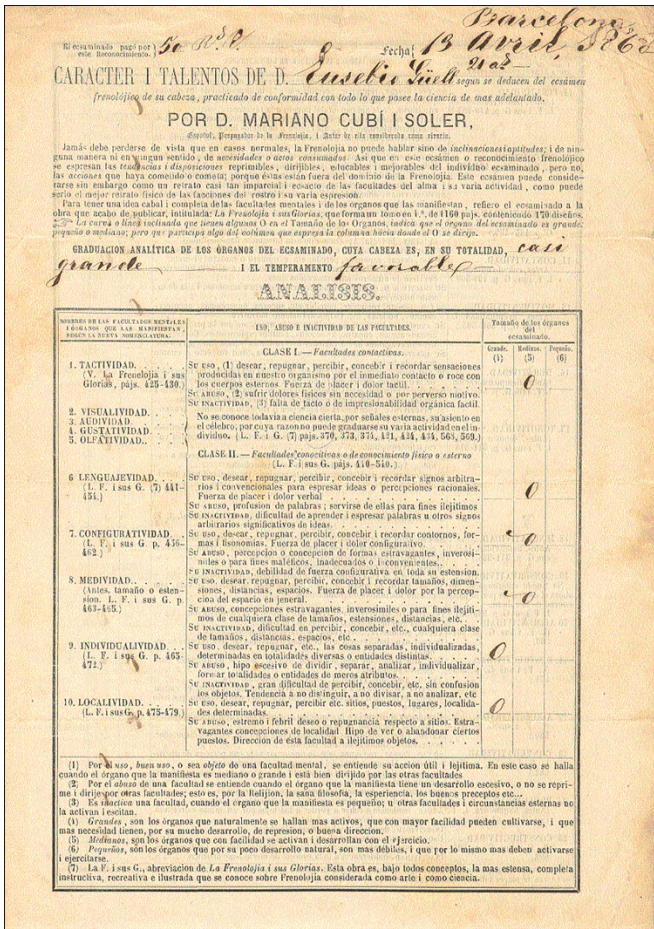 Barcelona
El ecsaminado pagó por este Reconocimiento. 50 Rs. V. Fecha 13 Avril, 1868
CARACTER I TALENTOS DE D. Eusebio Güell 21 as segun se deducen del ecsámen
frenolójico de su cabeza, practicado de conformidad con todo lo que posee la ciencia de mas adelantado.
POR D. MARIANO CUBÍ I SOLER,
Español, Propagador de la Frenolojia, i Autor de ella considerada como ciencia.
Jamás debe perderse de vista que en casos normales, la Frenolojía no puede hablar sino de inclinaciones i aptitudes; i de nin-
guna manera ni en ningun sentido, de necesidades o actos consumados. Así que en este ecsámen o reconocimiento frenolójico
se espresan las tendencias i disposiciones reprimibles, dirijibles, educables i mejorables del individuo ecsaminado, pero no,
las acciones que haya cometido o cometa; porque éstas están fuera del dominio de la Frenolojía. Este ecsámen puede conside-
rarse sin embargo como un retrato casi tan imparcial i ecsacto de las facultades del alma i su varia actividad, como puede
serlo el mejor retrato físico de las facciones del rostro i su varia espresion.
Para tener una idea cabal i completa de las facultades mentales i de los órganos que las manifiestan, refiero el ecsaminado a la
obra que acabo de publicar, intitulada: La Frenolojía i sus Glorias, que forma un tomo en 4.°, de 1160 páys. conteniendo 170 diseños.
La curva o línea inclinada que tienen algunos O en el Tamaño de los Organos, indica que el órgano del ecsaminado es grande,
pequeño o mediano; pero que participa algo del volúmen que espresa la columna hácia donde el O se dirije.
GRADUACION ANALÍTICA DE LOS ÓRGANOS DEL ECSAMINADO, CUYA CABEZA ES, EN SU TOTALIDAD, casi
grande I EL TEMPERAMENTO favorable
ANALISIS.
NOMBRES DE LAS FACULTADES MENTALES I ÓRGANOS QUE LAS MANIFIESTAN, SEGUN LA NUEVA NOMENCLATURA.
USO, ABUSO E INACTIVIDAD DE LAS FACULTADES.
Tamaño de los órganos del ecsaminado.
Grande. (4) Mediano. (5) Pequeño. (6)
CLASE I.—Facultades contactivas.
1. TACTIVIDAD. . . . .
(V. La Frenolojía i sus
Glorias, pájs. 425-430.)
SU USO, (1) desear, repugnar, percibir, concebir i recordar sensaciones
producidas en nuestro organismo por el inmediato contacto o roce con
los cuerpos esternos. Fuerza de placer i dolor tactil.
SU ABUSO, (2) sufrir dolores físicos sin necesidad o por perverso motivo.
SU INACTIVIDAD, (3) falta de tacto ó de impresionabilidad orgánica factil.
O
2. VISUALIVIDAD. . .
3. AUDIVIDAD. . . .
4. GUSTATIVIDAD. . .
5. OLFATIVIDAD. . .
No se conoce todavía a ciencia cierta, por señales esternas, su asiento en
el célebro, por cuya razon no puede graduarse su varia actividad en el in-
dividuo. (L. F. i G. (7) pajs. 370, 373, 374, 421, 424, 434, 568, 569.)
CLASE II.—Facultades conocitivas o de conocimiento físico o esterno
(L. F. i sus G. pájs. 440-540.)
6 LENGUAJEVIDAD. . .
(L. F. i sus G. (7) 441-
454.)
SU USO, desear, repugnar, percibir, concebir i recordar signos arbitra-
rios i convencionales para espresar ideas o percepciones racionales.
Fuerza de placer i dolor verbal
SU ABUSO, profusion de palabras; servirse de ellas para fines ilejítimos
SU INACTIVIDAD, dificultad de aprender i espresar palabras u otros signos
arbitrarios significativos de ideas.
O
7. CONFIGURATIVIDAD.
(L. F. i sus G. p. 456-
462.)
SU USO, desear, repugnar, percibir, concebir i recordar contornos, for-
mas i fisonomías. Fuerza de placer i dolor configurativo.
SU ABUSO, percepcion o concepcion de formas estravagantes, inverosí-
miles o para fines maléficos, inadecuados o inconvenientes.
SU INACTIVIDAD, debilidad de fuerza configurativa en toda su estension.
O
8. MEDIVIDAD. . . . .
(Antes, tamaño o esten-
sion. L. F. i sus G. p.
463-465.)
SU USO, desear, repugnar, percibir, concebir i recordar tamaños, dimen-
siones, distancias, espacios. Fuerza de placer i dolor por la percep-
cion del espacio en jeneral.
SU ABUSO, concepciones estravagantes, inverosímiles o para fines ilejíti-
mos de cualquiera clase de tamaños, estensiones, distancias, etc.
SU INACTIVIDAD, dificultad en percibir, concebir, etc., cualquiera clase
de tamaños, distancias, espacios, etc.
O
9. INDIVIDUALIVIDAD.
(L. F. i sus G. p. 465-
472.)
SU USO, desear, repugnar, etc., las cosas separadas, individualizadas,
determinadas en totalidades diversas o entidades distintas.
SU ABUSO, hipo escesivo de dividir, separar, analizar, individualizar,
formar totalidades o entidades de meros atributos.
SU INACTIVIDAD, gran dificultad de percibir, concebir, etc. sin confusion
los objetos. Tendencia a no distinguir, a no divisar, a no analizar, etc
O
10. LOCALIVIDAD. . . .
(L. F. i sus G. p. 475-479.)
SU USO, desear, repugnar, percibir etc. sitios, puestos, lugares, localida-
des determinadas.
SU ABUSO, estremo i febril deseo o repugnancia respecto a sitios. Estra-
vagantes concepciones de localidad. Hipo de ver o abandonar ciertos
puestos. Direccion de ésta facultad a ilejítimos objetos.
O
(1) Por el uso, buen uso, o sea objeto de una facultad mental, se entiende su accion útil i lejítima. En este caso se halla
cuando el órgano que la manifiesta es mediano o grande i está bien dirijido por las otras facultades
(2) Por el abuso de una facultad se entiende cuando el órgano que la manifiesta tiene un desarrollo escesivo, o no se repri-
me i dirije por otras facultades; esto es, por la Relijion, la sana filosofía, la esperiencia, los buenos preceptos etc...
(3) Es inactiva una facultad, cuando el órgano que la manifiesta es pequeño; u otras facultades i circunstancias esternas no
la activan i escitan.
(4) Grandes, son los órganos que naturalmente se hallan mas activos, que con mayor facilidad pueden cultivarse, i que
mas necesidad tienen, por su mucho desarrollo, de represion, o buena direccion.
(5) Medianos, son los órganos que con facilidad se activan i desarrollan con el ejercicio.
(6) Pequeños, son los órganos que por su poco desarrollo natural, son mas débiles, i que por lo mismo mas deben activarse
i ejercitarse.
(7) La F. i sus G., abreviacion de La Frenolojía i sus Glorias. Esta obra es, bajo todos conceptos, la mas estensa, completa
instructiva, recreativa e ilustrada que se conoce sobre Frenolojía considerada como arte i como ciencia.